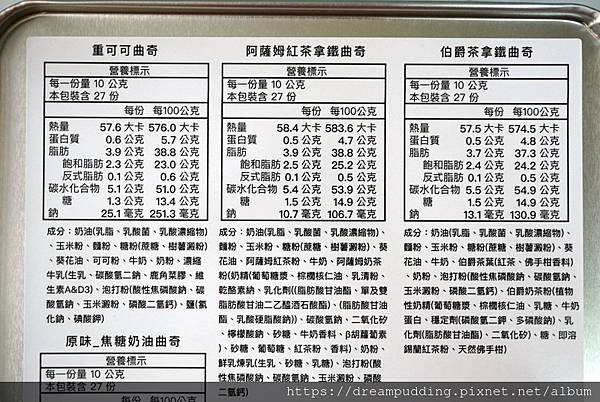 重可可曲奇
營養標示
每一份量 10 公克
本包裝含 27 份
每份 每100公克
熱量 57.6 大卡 576.0 大卡
蛋白質 0.6 公克 5.7 公克
脂肪 3.9 公克 38.8 公克
飽和脂肪 2.3 公克 23.0 公克
反式脂肪 0.1 公克 0.6 公克
碳水化合物 5.1 公克 51.0 公克
糖 1.3 公克 13.4 公克
鈉 25.1 毫克 251.3 毫克
成分：奶油(乳脂、乳酸菌、乳酸濃縮物)
、玉米粉、麵粉、糖粉(蔗糖、樹薯澱粉)
、葵花油、可可粉、牛奶、奶粉、濃縮
牛乳(生乳、碳酸氫二鈉、鹿角菜膠、維
生素A&D3)、泡打粉(酸性焦磷酸鈉、碳
酸氫鈉、玉米澱粉、磷酸二氫鈣)、鹽(氯
化鈉、碘酸鉀)
原味_焦糖奶油曲奇
營養標示
每一份量 10 公克
本包裝含 27 份
每份 每100公克
阿薩姆紅茶拿鐵曲奇
營養標示
每一份量 10 公克
本包裝含 27 份
每份 每100公克
熱量 58.4 大卡 583.6 大卡
蛋白質 0.5 公克 4.7 公克
脂肪 3.9 公克 38.8 公克
飽和脂肪 2.5 公克 25.2 公克
反式脂肪 0.1 公克 0.5 公克
碳水化合物 5.4 公克 53.9 公克
糖 1.5 公克 14.9 公克
鈉 10.7 毫克 106.7 毫克
成分：奶油(乳脂、乳酸菌、乳酸濃縮物)、
麵粉、玉米粉、糖粉(蔗糖、樹薯澱粉)、葵
花油、阿薩姆紅茶粉、牛奶、阿薩姆奶茶
粉(奶精(葡萄糖漿、棕櫚核仁油、乳清粉、
乾酪素鈉、乳化劑((脂肪酸甘油酯、單及雙
脂肪酸甘油二乙醯酒石酸酯)、(脂肪酸甘油
酯、乳酸硬脂酸鈉))、碳酸氫鈉、二氧化矽
、檸檬酸鈉、砂糖、牛奶香料、β胡蘿蔔素
)、砂糖、葡萄糖、紅茶粉、香料)、奶粉、
鮮乳煉乳(生乳、砂糖、乳糖)、泡打粉(酸
性焦磷酸鈉、碳酸氫鈉、玉米澱粉、磷酸
二氫鈣)
伯爵茶拿鐵曲奇
營養標示
每一份量 10 公克
本包裝含 27 份
每份 每100公克
熱量 57.5 大卡 574.5 大卡
蛋白質 0.5 公克 4.8 公克
脂肪 3.7 公克 37.3 公克
飽和脂肪 2.4 公克 24.2 公克
反式脂肪 0.1 公克 0.5 公克
碳水化合物 5.5 公克 54.9 公克
糖 1.5 公克 14.9 公克
鈉 13.1 毫克 130.9 毫克
成分：奶油(乳脂、乳酸菌、乳酸濃縮物)、
麵粉、玉米粉、糖粉(蔗糖、樹薯澱粉)、葵
花油、牛奶、伯爵茶葉(紅茶、佛手柑香料)
、奶粉、泡打粉(酸性焦磷酸鈉、碳酸氫鈉、
玉米澱粉、磷酸二氫鈣)、伯爵奶茶粉(植物
性奶精(葡萄糖漿、棕櫚核仁油、乳糖、牛奶
蛋白、穩定劑(磷酸氫二鉀、多磷酸鈉)、乳
化劑(脂肪酸甘油酯)、二氧化矽)、糖、即溶
錫蘭紅茶粉、天然佛手柑)
https://dreampudding.pixnet.net/album